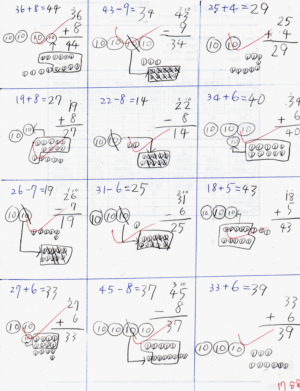 36+8=44
36
+ 8
44
10 10 10
43-9=34
43
- 9
34
10 10 10 10
25+4=29
25
+ 4
29
10 10
19+8=27
19
+ 8
27
10
22-8=14
22
- 8
14
10 10
34+6=40
34
+ 6
40
10 10 10
26-7=19
26
- 7
19
10 10
31-6=25
31
- 6
25
10 10 10
18+5=43
18
+ 5
43
10 10 10
27+6=33
27
+ 6
33
10 10
45-8=37
45
- 8
37
10 10 10 10
33+6=39
33
+ 6
39
10 10 10